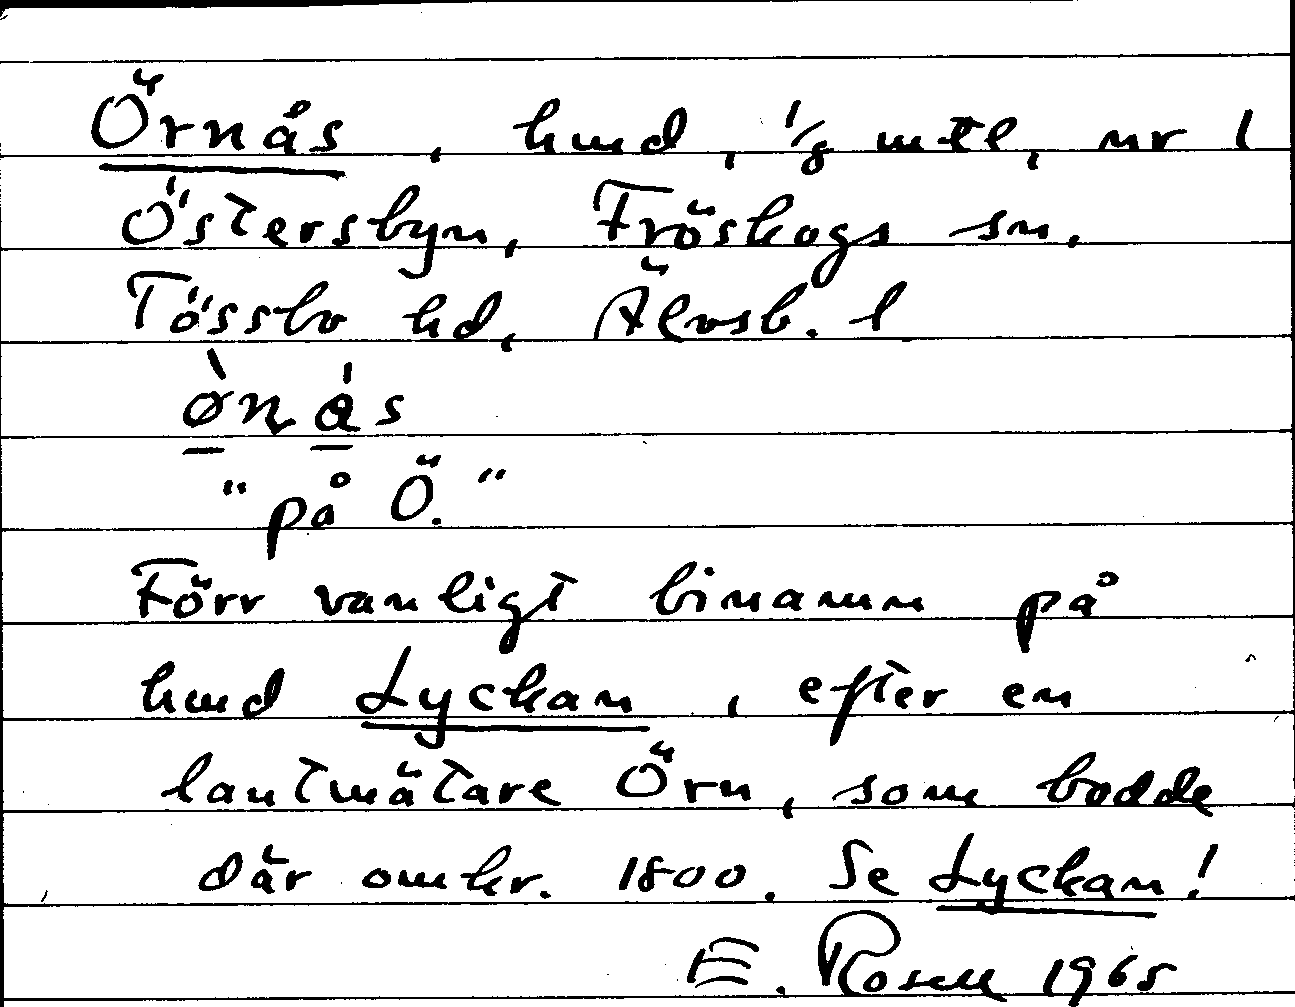 Örnås, hmd, 1/8 mtl, nr 1
Östersbyn, Fröskogs sn,
Tössbo hd, Älvsb. l
ø̀nɑ́s
"på Ö."
Förr vanligt binamn på
hmd Lyckan, efter en
lantmätare Örn, som bodde
där omkr. 1800. Se Lyckan!
E. Rosell 1965